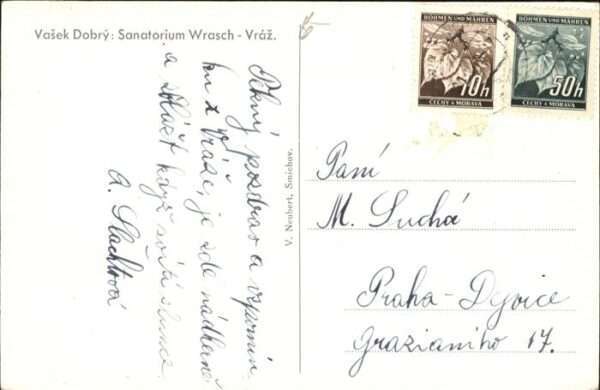 Vašek Dobrý: Sanatorium Wrasch - Vráž.
BÖHMEN UND MÄHREN
10h
ČECHY A MORAVA
BÖHMEN UND MÄHREN
50h
ČECHY A MORAVA
Pěkný pozdrav a vzpomín
ku z Vráže, je zde nádherně
a zvlášť když svítí slunce
A. Slachtová
V. Neubert, Smíchov.
Paní
M. Suchá
Praha-Dejvice
Grazianiho 17.